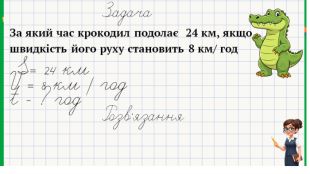 Задача
За який час крокодил подолає 24 км, якщо
швидкість його руху становить 8 км/ год
S = 24 км
V = 8 км / год
t - ? год
Розв'язання